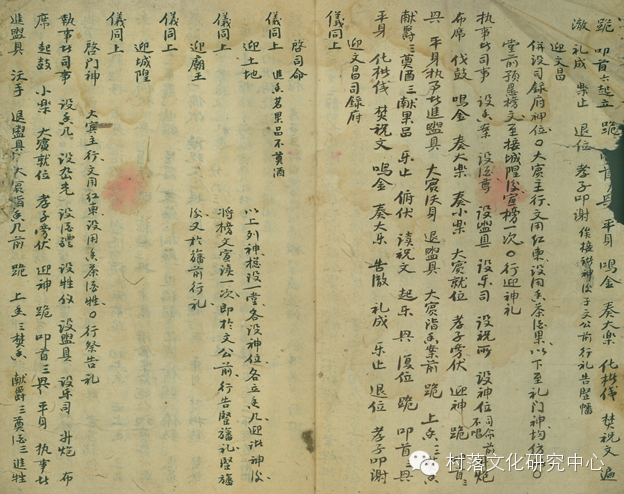 跪 叩首六起立 跪 首 具 平身 鳴金 奏大樂 化楮儀 焚祝文 遍
澈 礼成 樂止 退位 孝子叩謝 俟接 神後于文公前行礼告竪旛
迎文昌
併設司録府神位〇大賓主行文用紅柬設用香茶酒果以下至礼門神均仿〇
堂前預懸榜文至接城隍後宣榜一次〇行迎神礼
執事者司事 設香案 設酒尊 設盥具 设乐司 设祝所 設神位司命前 炮
布席 伐鼓 鳴金 奏大樂 奏小樂 大賓就位 孝子旁伏 迎神 跪 叩首三
具 平身 執事者進盥具 大賓沃身 退盥具 大賓詣香案前 跪 上香三
献爵三奠酒三献果品 乐止 俯伏 读祝文 起乐 具 復位 跪 叩首三具
平身 化楮儀 焚祝文 鳴金 奏大乐 告澈 礼成 乐止 退位 孝子叩谢
迎文昌司録府
儀同上
啓司命
進香茗果品不奠酒
儀同上
迎土地
儀同上
迎廟王
儀同上
迎城隍
儀同上
以上列神總設一堂各設神位各立香几迎 神後
將榜文宣读一次即於文公前行告竪旛礼竪旛
後又於旛前行礼
啓門神
大賓主行文用紅柬設用香茶酒牲〇行祭告礼
執事者司事 設香几 設 設酒醴 設牲仪 設盥具 設乐司 升炮 布
席 起鼓 小樂 大賓就位 孝子旁伏 迎神 跪 叩首三具 平身 執事者
進盥具 沃手 退盥具 大賓詣香几前 跪 上香三焚香 献爵三奠酒三進牲
村落文化研究中心